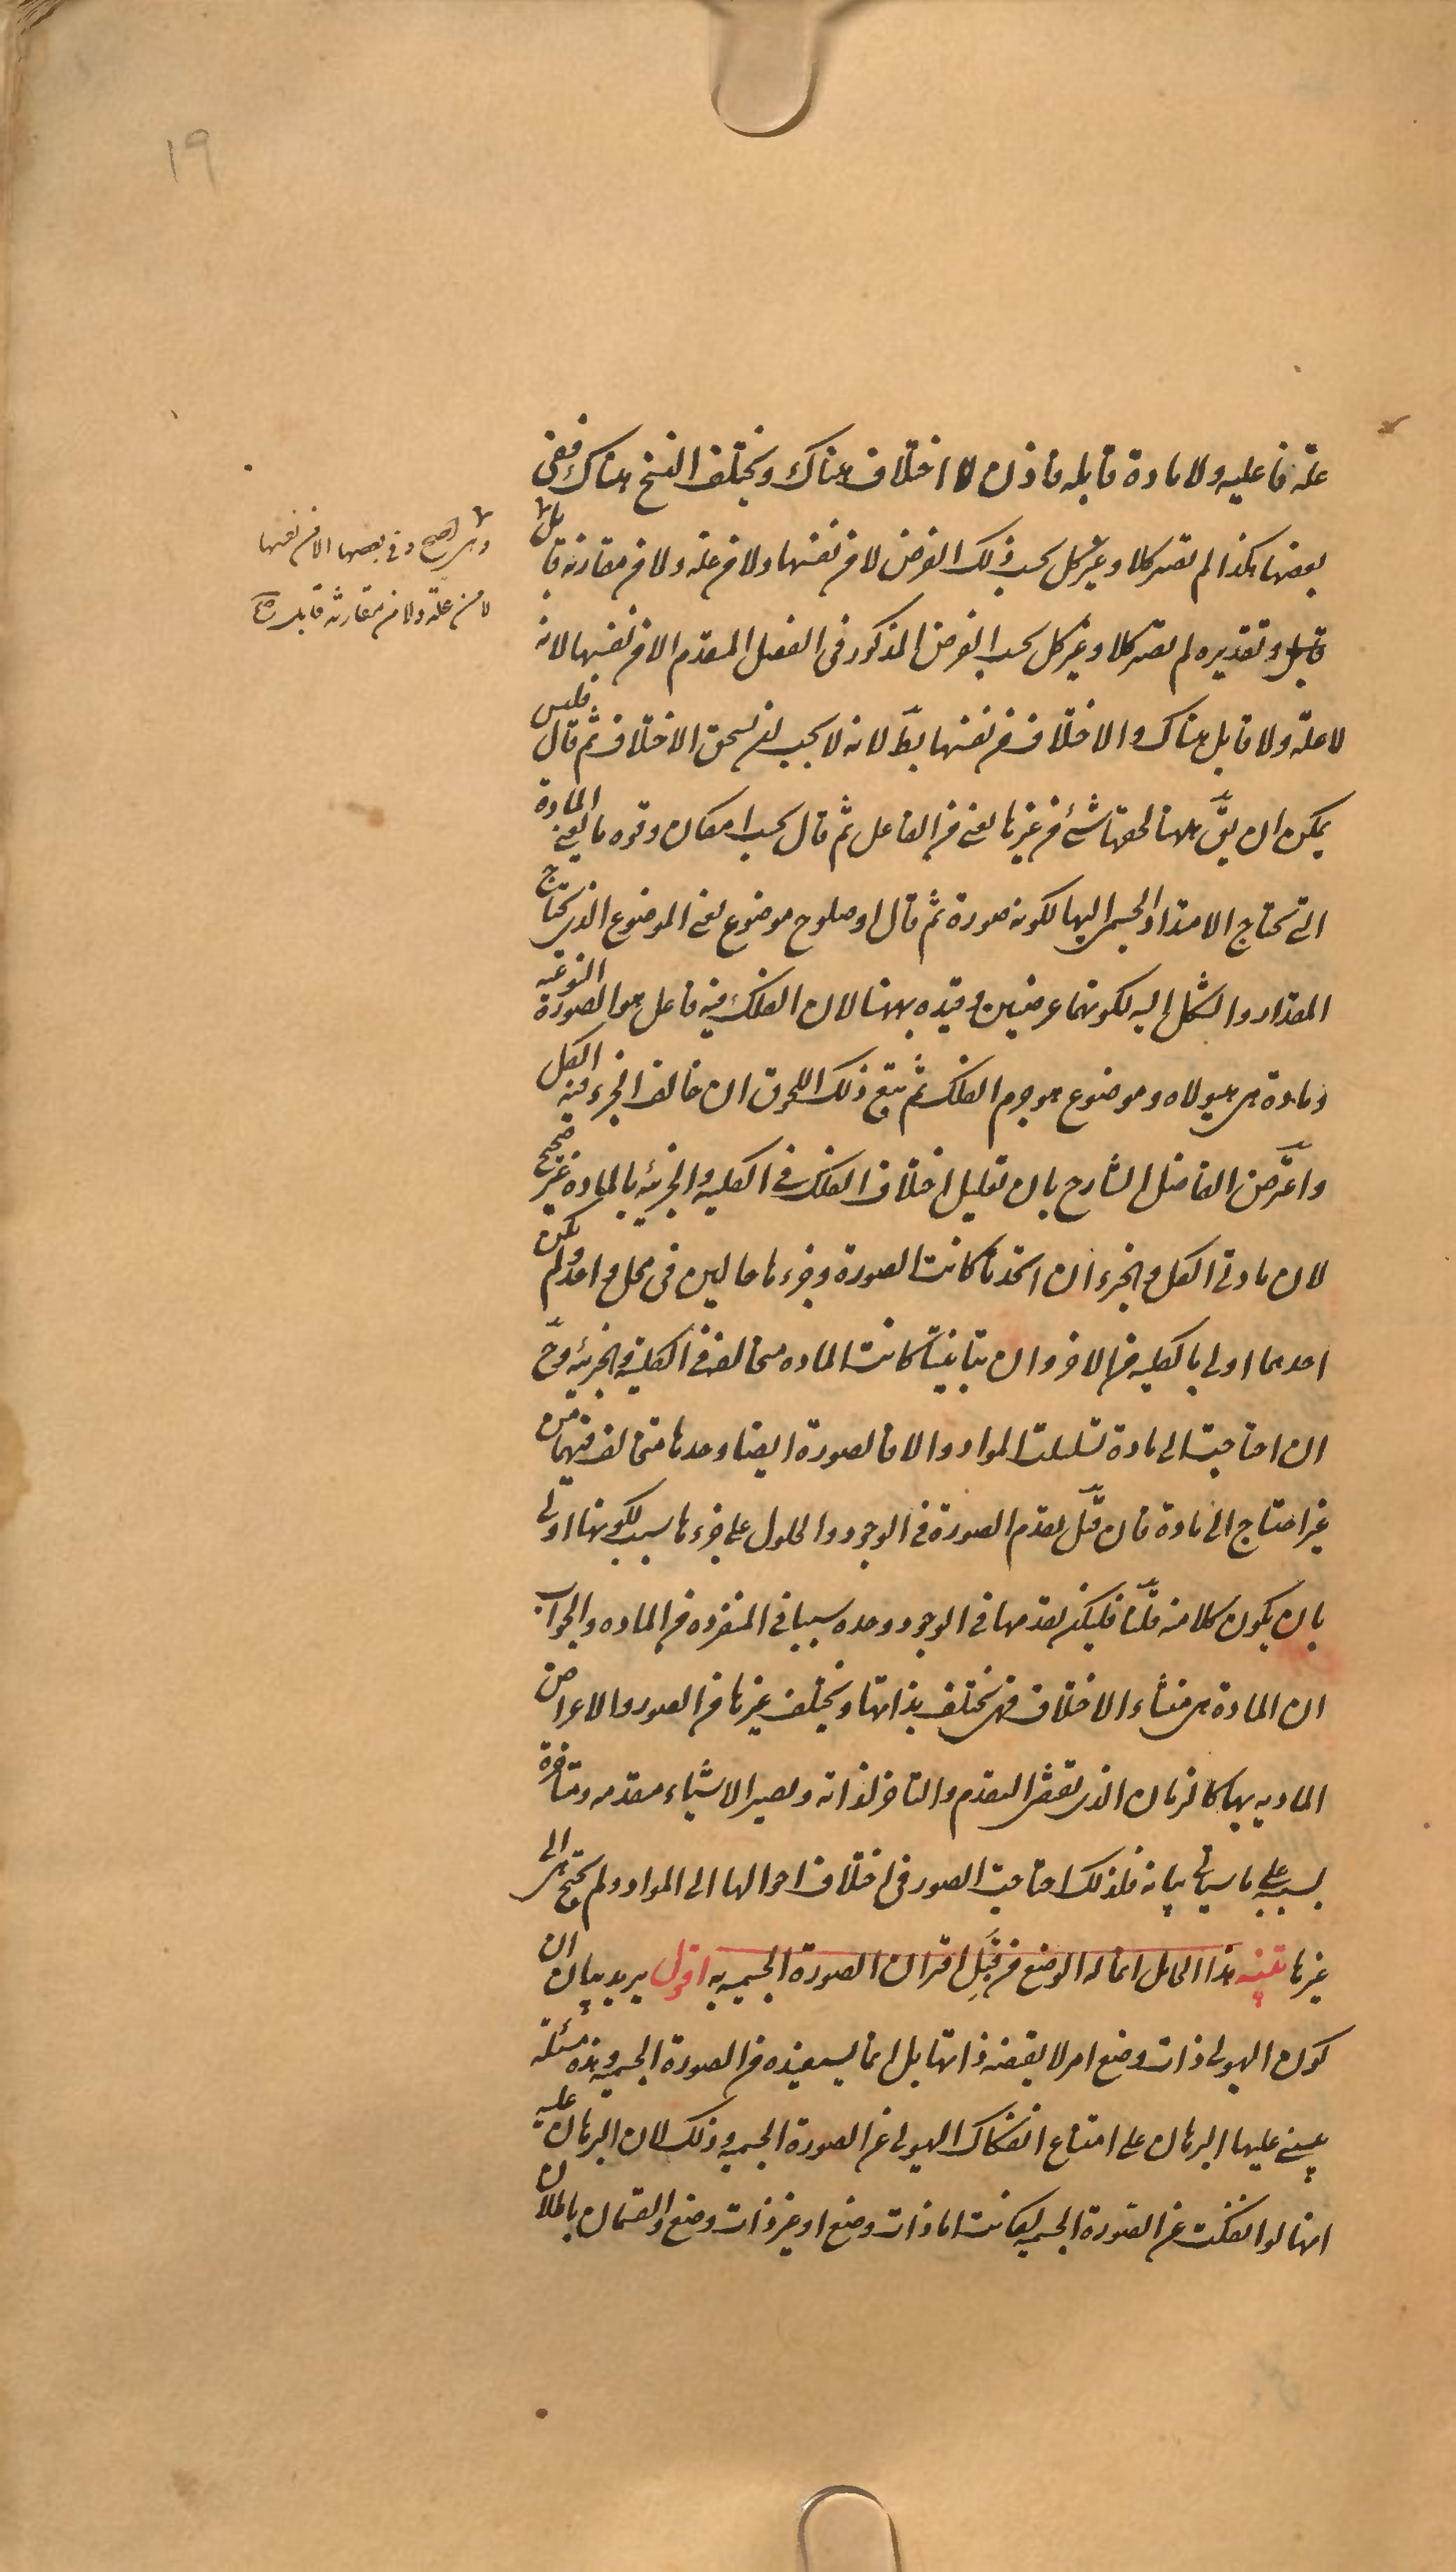 ١٩
علة فاعليه ولا مادة قابله فاذن لا اختلاف هناك ويختلف النسخ هناك ففى
بعضها هكذا لم تصر كلا وغير كل بحسب ذلك الفرض لا من نفسها ولا من علة ولا من مقارنة قابل
قابل وتقديره لم تصر كلا وغير كل بحسب الفرض المذكور فى الفصل المتقدم الا من نفسها لانه
لا علة ولا قابل هناك والاختلاف من نفسها بط لانه لا يجب ان تستحق الاختلاف ثم قال فليس
يمكن ان يق ههنا لحقها شئ من غيرها يعنى من الفاعل ثم قال بحسب امكان وقوه ما يعنى المادة
التى تحتاج الامتداد الجسمى اليها لكونه صورة ثم قال او صلوح موضوع يعنى الموضوع الذى يحتاج
المقدار والشكل اليه لكونهما عرضيين وقيده بههنا لان الفلك فيه فاعل هو الصورة النوعيه
ومادة هى هيولاه وموضوع هو جرم الفلك ثم تبع ذلك اللحوق ان خالف الجزء فيه الكل
واعترض الفاضل الشارح بان تعليل اختلاف الفلك فى الكليه والجزئيه بالماده غير صحيح
لان مادتى الكل والجزء ان اتحدتا كانت الصورة وجزءها حالين فى محل واحد ولم يكن
احدهما اولى بالكليه من الاخر وان تباينتا كانت الماده متخالفه فى الكليه والجزئيه وح
ان احتاجت الى مادة تسلسلت المواد والا فالصورة ايضا وحدها متخالفه فيهما من
غير احتياج الى مادة فان قيل تقدم الصورة فى الوجود والحلول على جزءها سبب لكونها اولى
بان يكون كلا منه قلنا فليكن تقدمها فى الوجود وحده سببا فى المنفرده من الماده والجواب
ان المادة هى منشاء الاختلاف فهى تختلف بذاتها وتختلف غيرها من الصور والاعراض
الماديه بها كالزمان الذى يقتضى التقدم والتاخر لذاته وتصير الاشياء متقدمه ومتاخرة
بسببه على ما سياتى بيانه فلذلك احتاجت الصور فى اختلاف احوالها الى المواد ولم تحتج هى الى
غيرها تنبيه هذا الحامل انما له الوضع من قبل اقتران الصورة الجسميه به اقول يريد بيان ان
كون الهيولى ذات وضع امر لا يقتضيه ذاتها بل انما تستفيده من الصورة الجسميه وهذه مسئلة
يبتنى عليها البرهان على امتناع انفكاك الهيولى عن الصورة الجسميه وذلك لان البرهان عليه
انها لو انفكت عن الصورة الجسميه لكانت اما ذات وضع او غير ذات وضع والقسمان باطلان
وهى اصح وفى بعضها الا من نفسها
لا من علة ولا من مقارنة قابل